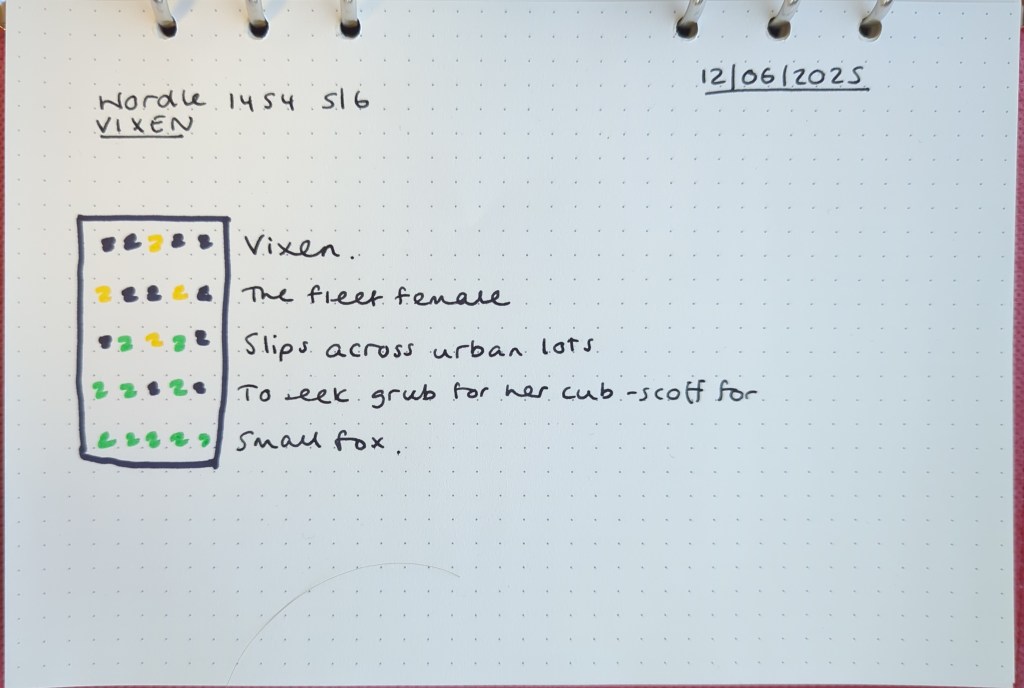 12/06/2025
Wordle 1454 5/6
VIXEN
Vixen.
The fleet female
Slips across urban lots
To seek grub for her cub - scoff for
Small fox.